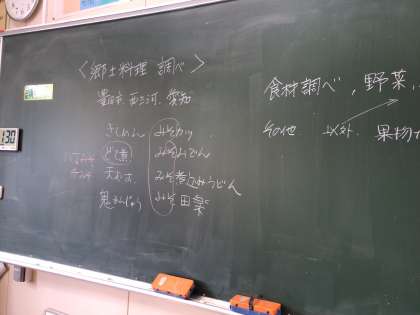 〈郷土料理 調べ〉
豊田市、西三河、愛知
きしめん みそカツ
どて煮 みそおでん
天むす みそ煮込みうどん
鬼まんじゅう みそ田楽
食材調べ, 野菜
その他 以外 果物
130